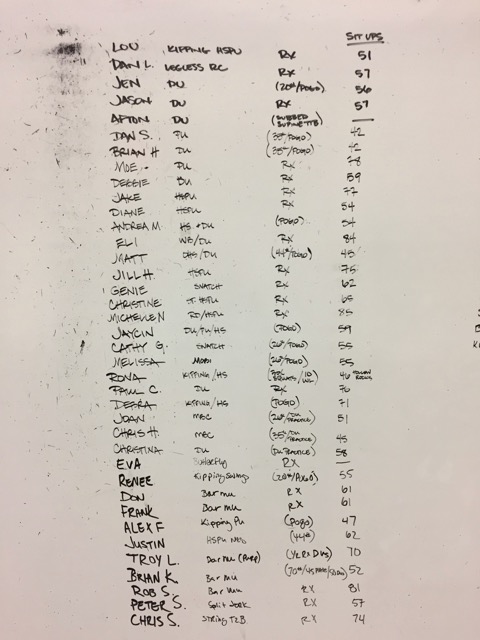 SIT UPS
LOU KIPPING HSPU RX 51
DAN L. LEGLESS RC RX 57
JEN DU (20#/POGO) 56
JASON DU RX 57
AFTON DU (SUBBED SUPINE TTB) —
DAN S. PU (35#/POGO) 42
BRIAN H DU (35#/POGO) 42
MOE DU RX
DEBBIE DU RX 59
JAKE HSPU RX 77
DIANE HSPU RX 54
ANDREA M. HS + DU (POGO) 54
ELI WB/DU RX 84
MATT DHS/DU (44#/POGO) 45
JILL H. HSPU RX 75
GENIE SNATCH RX 62
CHRISTINE ST. HSPU RX 65
MICHELLE N RC/HSPU RX 85
JAYCIN DU/PU/HS (POGO) 59
CATHY G. SNATCH (26#/POGO) 55
MELISSA MOBI (26#/POGO) 55
RONA KIPPING/HS 46
PAUL C. DU RX 76
DEBRA KIPPING/HS (POGO) 71
JOAN MSC (26#/DU PRACTICE) 51
CHRIS H. MSC (35#/DU PRACTICE) 45
CHRISTINA DU (DU PRACTICE) 58
EVA Butterfly RX —
RENEE Kipping Swings (20#/POGO) 55
DON Bar mu RX 61
FRANK Bar mu RX 61
ALEX F Kipping Pu (POGO) 47
JUSTIN HSPU (44#) 62
TROY L. Bar mu (Prep) (YR RX DUs) 70
BRIAN K. Bar mu 52
ROB S. Bar mu RX 81
PETER S. Split Jerk RX 57
CHRIS S. Strict T2B RX 74